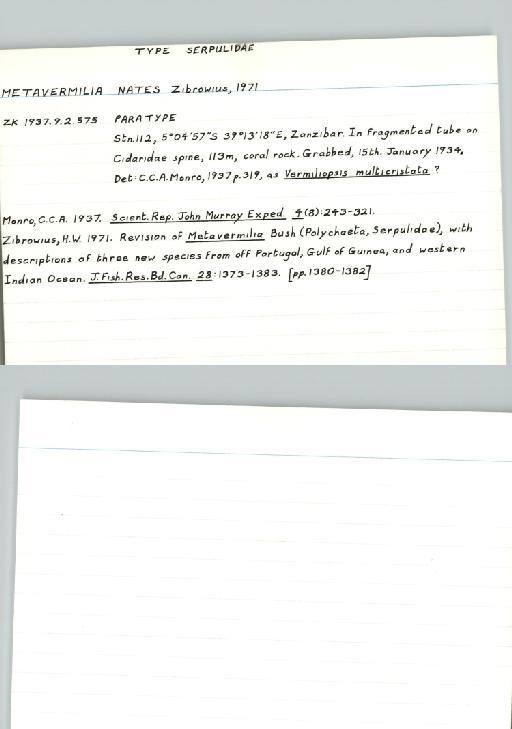 TYPE SERPULIDAE
METAVERMILIA NATES Zibrowius, 1971
ZK 1937.9.2.575 PARATYPE
Stn.112, 5°04'57"S 39°13'18"E, Zanzibar. In fragmented tube on
Cidaridae spine, 113m, coral rock. Grabbed, 15th. January 1934,
Det: C.C.A. Monro, 1937 p.319, as Vermiliopsis multicristata ?
Monro, C.C.A. 1937. Scient. Rep. John Murray Exped 4(8):243-321.
Zibrowius, H.W. 1971. Revision of Metavermilia Bush (Polychaeta, Serpulidae), with
descriptions of three new species from off Portugal, Gulf of Guinea, and western
Indian Ocean. J. Fish. Res. Bd. Can. 28:1373-1383. [pp.1380-1382]